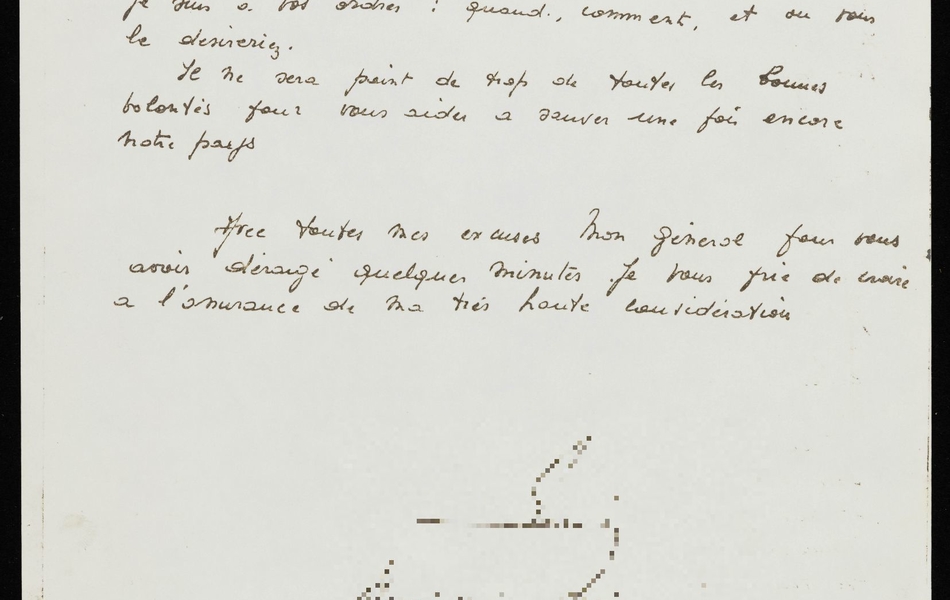 je suis a vos ordres : quand, comment, et ou vous
le desireriez.
Il ne sera point de trop de toutes les bonnes
volontés pour vous aider a sauver une fois encore
notre pays
Avec toutes mes excuses Mon général pour vous
avoir dérangé quelques minutes. Je vous prie de croire
a l'assurance de ma très haute considération